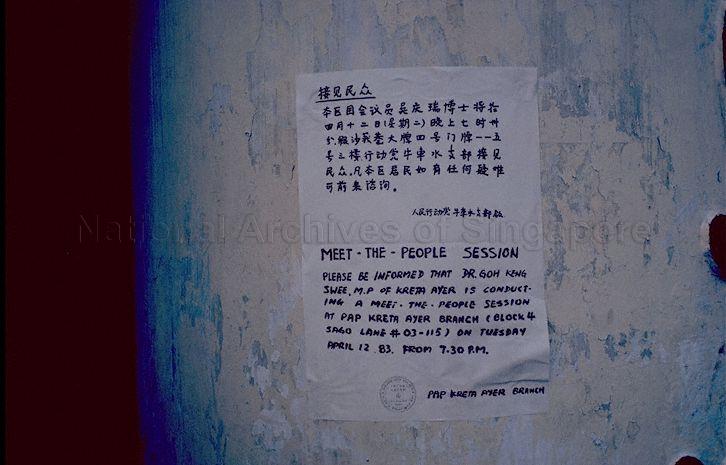 接见民众
本区国会议员吴庆瑞博士将於
四月十二日(星期二)晚上七时卅
分假沙莪巷大牌四号门牌一一五
号三楼行动党牛车水支部接见
民众,凡本区居民如有任何疑难
可前来谘询。
人民行动党牛车水支部启
National Archives of Singapore
MEET-THE-PEOPLE SESSION
PLEASE BE INFORMED THAT DR. GOH KENG
SWEE, M.P OF KRETA AYER IS CONDUCT-
ING A MEET-THE-PEOPLE SESSION
AT PAP KRETA AYER BRANCH (BLOCK 4
SAGO LANE # 03-115) ON TUESDAY
APRIL 12.83. FROM 7.30 P.M.
PAP KRETA AYER BRANCH